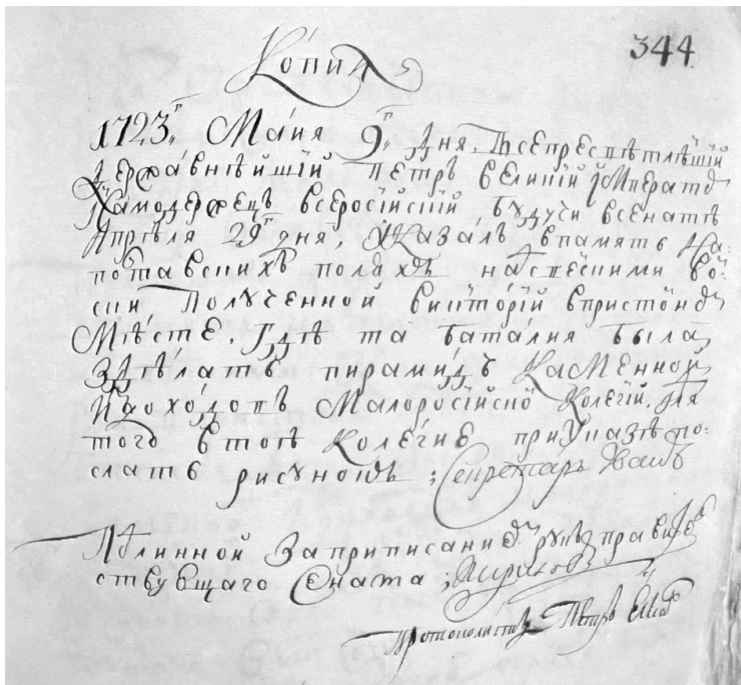 344
Копиа
1723 Маия 9 дня Всепресвѣтлѣйший
державнѣйший Петръ великий Императо
самодержецъ всеросийский будучи всенатѣ
Апрѣля 29 дня, указалъ впамять На
полтавскихъ поляхъ надшвецкими вой
ски полученной виктории впристойно
мѣсте. Гдѣ та баталия была
здѣлать пирамидъ каменной
издоходовъ Малоросийской Колегии. для
того втое Колегие при Указѣ по
слать рисунокъ; Секретарь Іванъ
Кириловъ
Подлинной Заприписаниемъ рукъ правите
ствующаго Сената;
Протоколистъ Петръ